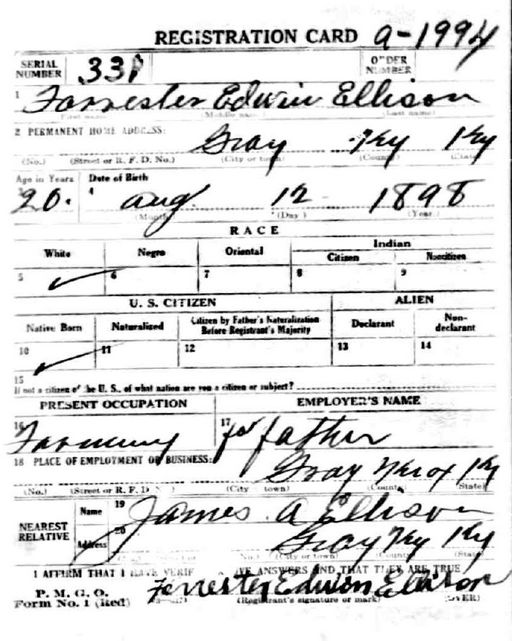 REGISTRATION CARD a-1994
SERIAL NUMBER 331 ORDER NUMBER
1 Forrester Edwin Ellison
(First name) (Middle name) (Last name)
2 PERMANENT HOME ADDRESS: Gray Ky
(No.) (Street or R. F. D. No.) (City or town) (County) (State)
Age in Years Date of Birth
20. 4 Aug 12 1898
(Month) (Day) (Year)
RACE
White Negro Oriental Indian
Citizen Noncitizen
5 ✓ 6 7 8 9
U. S. CITIZEN ALIEN
Native Born Naturalized Citizen by Father's Naturalization Before Registrant's Majority Declarant Non-declarant
10 ✓ 11 12 13 14
15
If not a citizen of the U. S., of what nation are you a citizen or subject?
PRESENT OCCUPATION EMPLOYER'S NAME
16 Farming 17 for father
18 PLACE OF EMPLOYMENT OR BUSINESS: Gray Knox Ky
(No.) (Street or R. F. D. (City town) (County) (State)
NEAREST RELATIVE
Name 19 James A Ellison
Address 20 Gray Ky
(City or town) (County) (State)
I AFFIRM THAT I HAVE VERIF VE ANSWERS AND THAT THEY ARE TRUE
P. M. G. O.
Form No. 1 (Red) Forrester Edwin Ellison
(Registrant's signature or mark) (OVER)